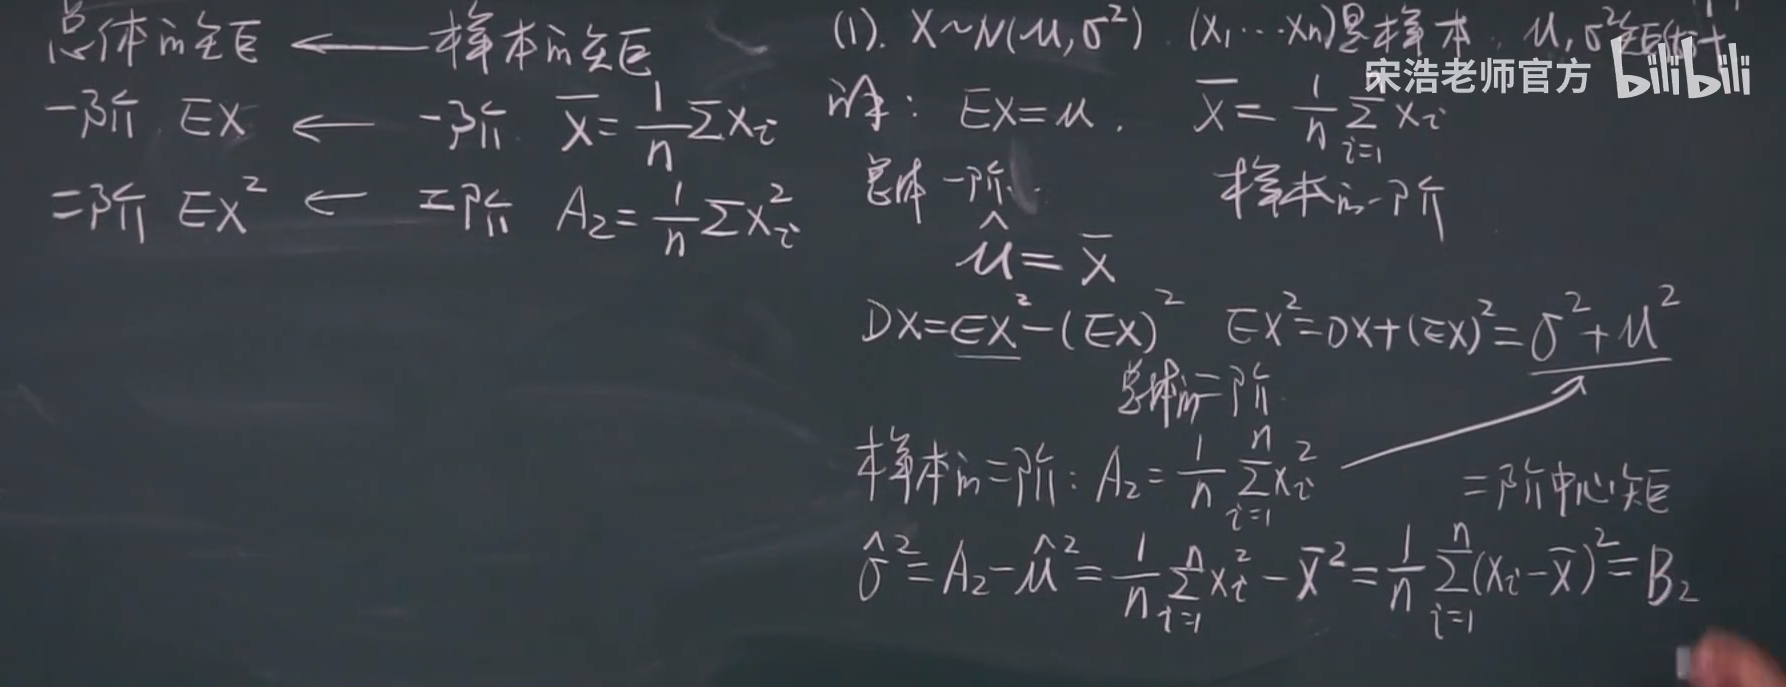 总体的矩 ← 样本的矩
一阶 EX ← 一阶 X̄=1/n ΣXᵢ
二阶 EX² ← 二阶 A₂=1/n ΣXᵢ²
(1). X~N(μ,σ²). (X₁…Xₙ)是样本, μ,σ²矩估计
宋浩老师官方 bilibili
解: EX=μ. X̄=1/n Σᵢ₌₁ Xᵢ
总体一阶. 样本的一阶
μ̂=X̄
DX=EX²-(EX)² EX²=DX+(EX)²=σ²+μ²
总体的二阶
样本的二阶: A₂=1/n Σᵢ₌₁ⁿ Xᵢ² 二阶中心矩
σ̂²=A₂-μ̂²=1/n Σᵢ₌₁ⁿ Xᵢ²-X̄²=1/n Σᵢ₌₁ⁿ (Xᵢ-X̄)²=B₂